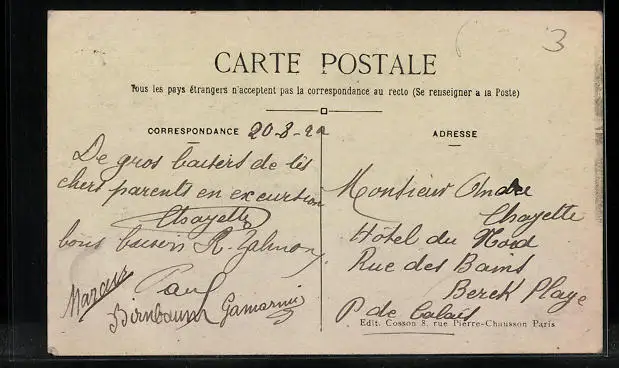 3
CARTE POSTALE
Tous les pays étrangers n'acceptent pas la correspondance au recto (Se renseigner a la Poste)
CORRESPONDANCE 20-8-22
De gros baisers de tes
chers parents en excursion
Chayette
bons baisers R. Zalmony
Marcus
Paul
Birnbaum Gamarnic
ADRESSE
Monsieur Andre
Chayette
Hôtel du Nord
Rue des Bains
Berck Plage
P de Calais
Edit. Cosson 8, rue Pierre-Chausson Paris